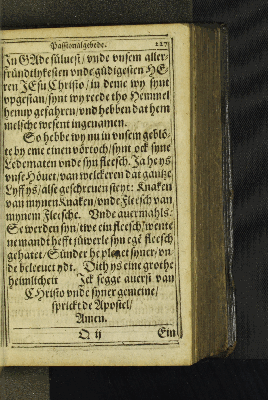 Passionalgebede. 227
In GAde súluest / vnde vnsem aller=
fründtlykesten vnde gúdigesten HE=
ren JEsu Christo / in deme wy synt
vpgestan / synt wy rede tho Hemmel
henup gefahren / vnd hebben dat hem
melsche wesent ingenamen.
So hebbe wy nu in vnsem gebló=
te by eme einen vörtoch / synt ock syne
Ledematen vnde syn fleesch. Ja he ys
vnse Höuet / van welckeren dat gantze
Lyff ys / alse geschreuen steyt: Knaken
van mynen Knaken / vnde Fleesch van
mynem Fleesche. Vnde auermahls:
Se werden syn / twe ein fleesch / wente
nemandt hefft júwerle syn egē fleesch
gehatet / Sünder he pleget syner / vn
de beleuet ydt. Dith ys eine grothe
heimlicheit Ick segge auerst van
CHristo vnde syner gemeine /
sprickt de Apostel /
Amen.
O ij Ein